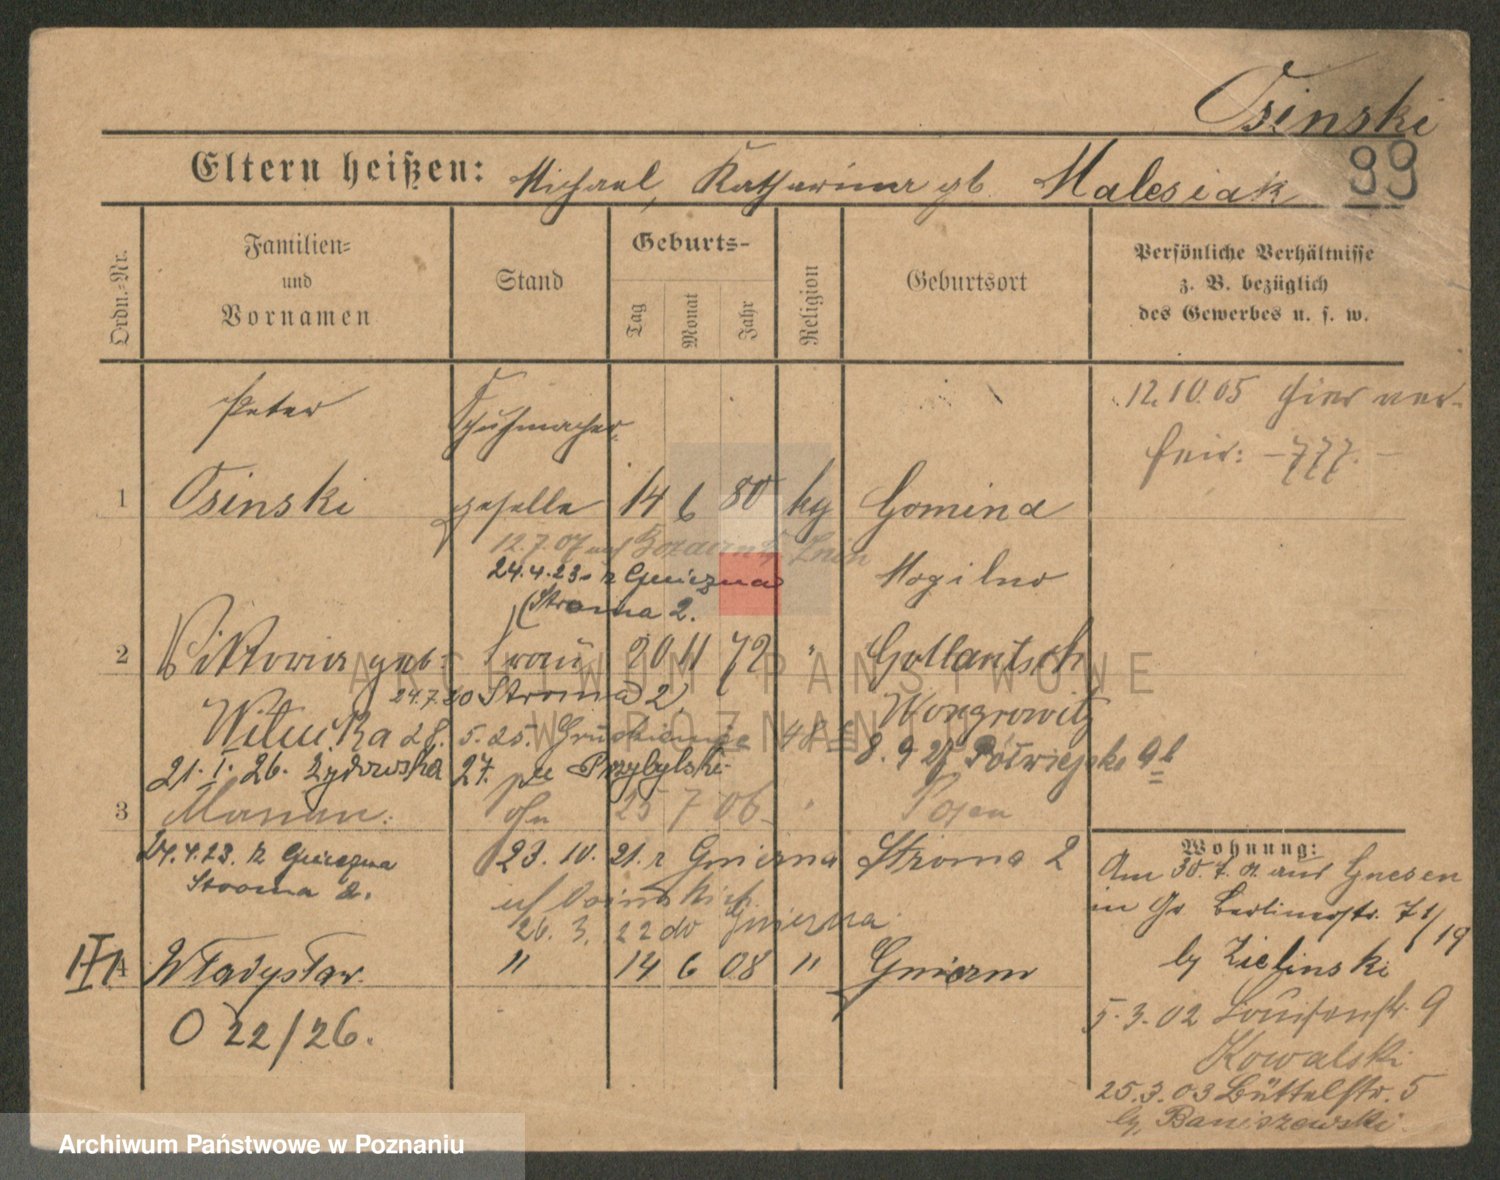 Osinski
Eltern heißen: Michael, Katharina gb. Malesiak 99
Ordn.-Nr.
Familien- und Vornamen
Stand
Geburts-
Tag
Monat
Jahr
Religion
Geburtsort
Persönliche Verhältnisse
z. B. bezüglich
des Gewerbes u. s. w.
12.10.05 hier ver-
heir: -777.-
Peter Schuhmacher-
1 Osinski geselle 14 6 80 kg Gomind
12.7.07 auf Znin
24.4.23. z Gniezna Mogilno
(Stroma 2.
2 Viktoria geb. Frau 20 11 72 " Gollantsch
24.7.20 Stroma 2, Wongrowitz
Witućka 28. 5. 25. 48
8. 9 Półwiejska
21. I. 26. Żydowska 27. Przybylski
3 Marian. Sohn 25 7 06 " Posen
24.4.23. z Gniezna 23. 10. 21. z Gniezna Stroma 2
Stroma 2.
26. 3. 22 do Gniezna
4 Władysław. " 14 6 08 " Gniezno
O 22/26.
Wohnung:
Am 30. 7. 01 aus Gnesen
in Gr Berlinerstr. 71/19
by Zielinski
5.3.02 Louisenstr. 9
Kowalski
25.3.03 Büttelstr. 5
by Baniszewski.
ARCHIWUM PAŃSTWOWE
W POZNANIU
Archiwum Państwowe w Poznaniu